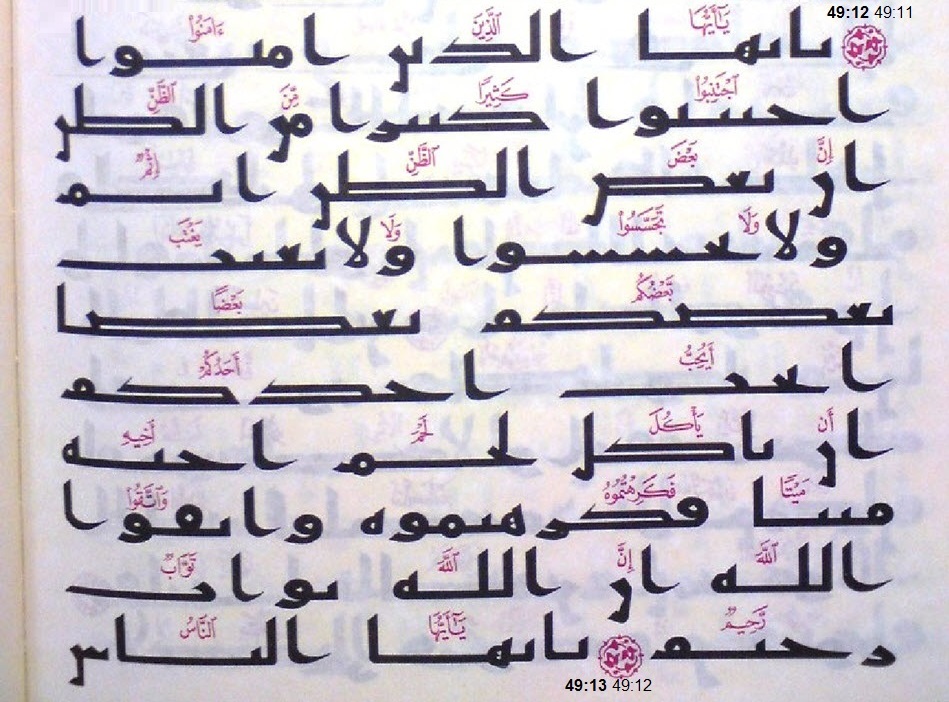 49:12 49:11
يَـٰٓأَيُّهَا ٱلَّذِينَ ءَامَنُوا۟
يايها الذين امنوا
ٱجْتَنِبُوا۟ كَثِيرًا مِّنَ ٱلظَّنِّ
اجتنبوا كثيرا من الظن
إِنَّ بَعْضَ ٱلظَّنِّ إِثْمٌ
ان بعض الظن اثم
وَلَا تَجَسَّسُوا۟ وَلَا يَغْتَب
ولا تجسسوا ولا يغتب
بَّعْضُكُم بَعْضًا
بعضكم بعضا
أَيُحِبُّ أَحَدُكُمْ
ايحب احدكم
أَن يَأْكُلَ لَحْمَ أَخِيهِ
ان ياكل لحم اخيه
مَيْتًا فَكَرِهْتُمُوهُ وَٱتَّقُوا۟
ميتا فكرهتموه واتقوا
ٱللَّهَ إِنَّ ٱللَّهَ تَوَّابٌ
الله ان الله تواب
رَّحِيمٌ يَـٰٓأَيُّهَا ٱلنَّاسُ
رحيم يايها الناس
49:13 49:12